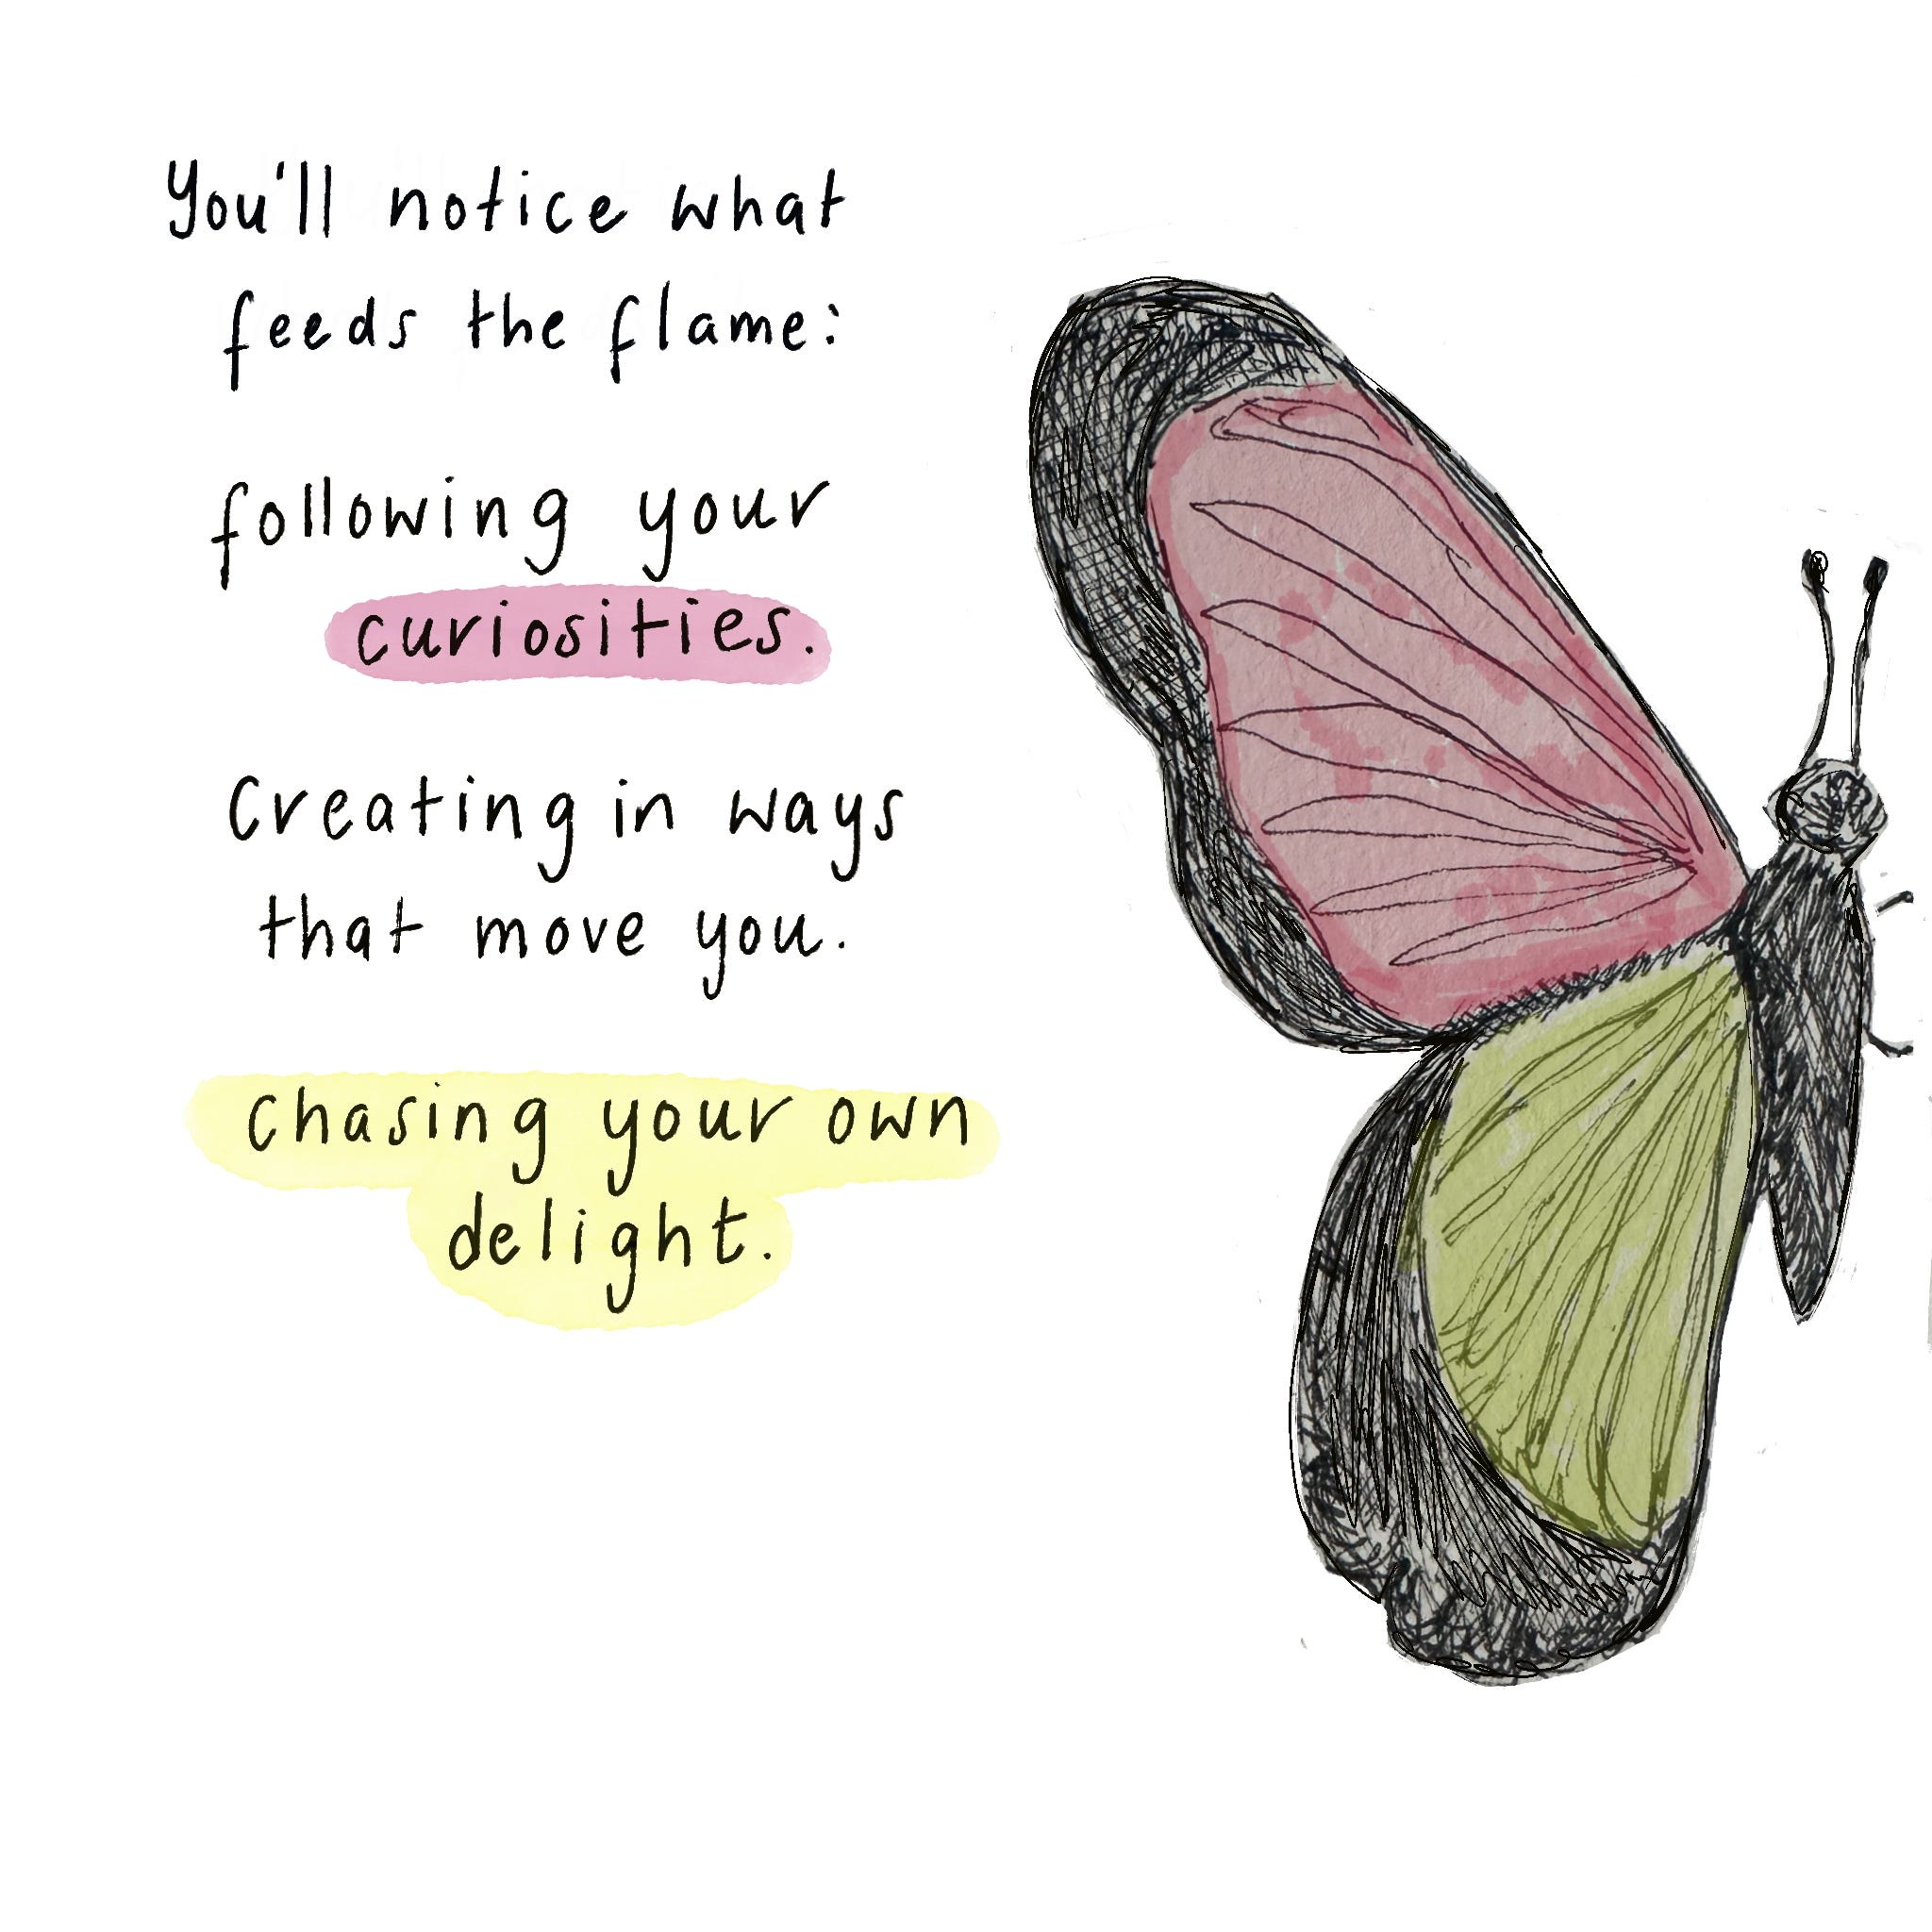 You'll notice what
feeds the flame:
following your
curiosities.
Creating in ways
that move you.
chasing your own
delight.